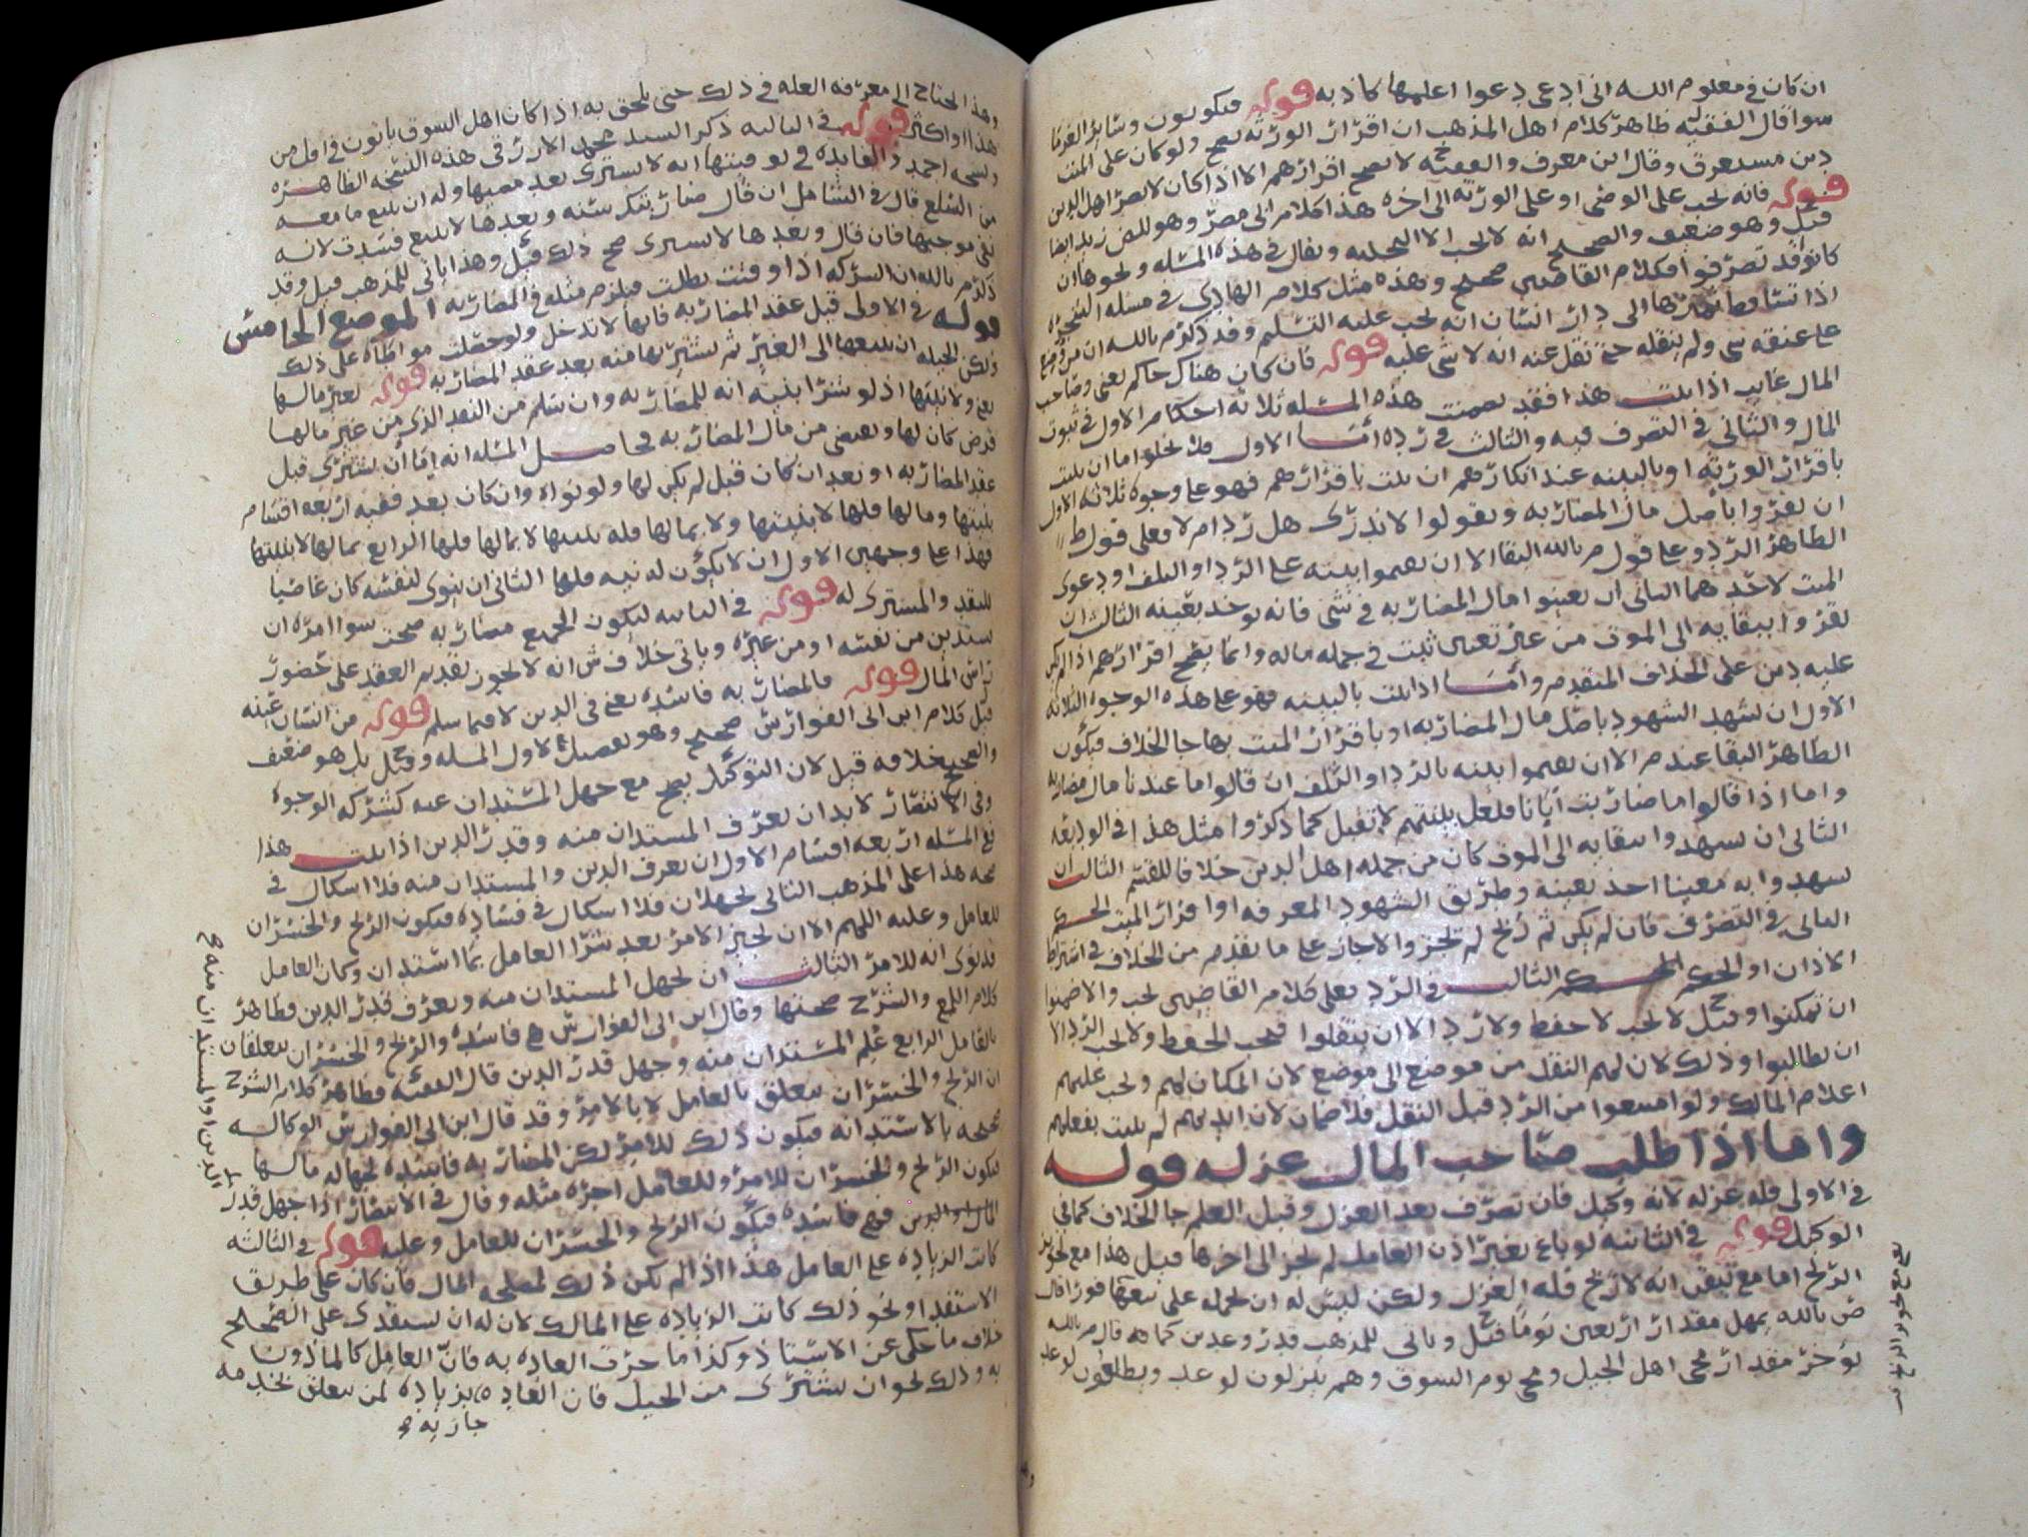 ان كان في معلوم الله اني ادعى دعوا اعلمها كاذبه قوله فيكونون وسائر الغرما
سوا قال الفقيه ظاهر كلام اهل المذهب ان اقرار الورثه يصح ولو كان على الميت
دين مستغرق وقال ابن معرف والفقيه لا يصح اقرارهم الا اذا كان لا يضر اهل الدين
قوله فانه يجب على الوصى او على الورثه الى اخره هذا كلام ابى مضر وهو للمن زيد ايضا
قيل وهو ضعيف والصحيح انه لا يجب الا التخليه ويقال في هذه المسئله ونحوها ان
كانوا قد تصرفوا فكلام القاضي صحيح وهذه مثل كلام الهادي في مسئله الشجره
اذا تساقط ثمرها الى دار انسان انه يجب عليه التسلم وقد ذكر م بالله ان من وضع
على عنقه شي ولم ينقله حتى نقل عنه انه لا شي عليه قوله فان كان هناك حاكم يعنى وصاحب
المال غايب اذا ثبت هذا فقد تضمنت هذه المسئله ثلاثه احكام الاول في ثبوت
المال والثاني في التصرف فيه والثالث في رده اما الاول فلا يخلوا اما ان يثبت
باقرار الورثه او بالبينه عند انكارهم ان ثبت باقرارهم فهو على وجوه ثلاثه الاول
ان يقروا باصل مال المضاربه ويقولوا لا ندرى هل رد ام لا فعلى قول ط
الظاهر الرد وعلى قول م بالله البقا الا ان يقيموا بينه على الرد او التلف او دعوى
الميت لاحدهما الثانى ان يعينوا مال المضاربه في شى فانه يوخذ بعينه الثالث ان
يقروا ببقايه الى الموت من غير تعيين ثبت في جمله ماله وانما يصح اقرارهم اذا لم يكن
عليه دين على الخلاف المتقدم واما اذا ثبت بالبينه فهو على هذه الوجوه الثلاثه
الاول ان يشهد الشهود باصل مال المضاربه او باقرار الميت بها جا الخلاف فيكون
الظاهر البقا عند م الا ان يقيموا بينه بالرد او التلف ان قالوا ما عندنا مال مضاربه
واما اذا قالوا ما ضاربت ابانا فلعل بينتهم لا تقبل كما ذكروا مثل هذا في الوديعه
الثانى ان يشهدوا ببقايه الى الموت كان من جمله اهل الدين خلافا للفقيه الثالث ان
يشهدوا به معينا اخذ بعينه وطريق الشهود المعرفه او اقرار الميت الحكم
الثانى في التصرف فان لم يكن ثم ربح لم يجز والا جاز على ما تقدم من الخلاف في اشتراط
الاذن او الحكم الحكم الثالث في الرد فعلى كلام القاضي يجب والا ضمنوا
ان تمكنوا وقيل لا يجب لا حفظ ولا رد الا ان ينقلوا فيجب الحفظ ولا يجب الرد الا
ان يطالبوا وذلك لان لهم النقل من موضع الى موضع لان المكان لهم ويجب عليهم
اعلام المالك ولو امتنعوا من الرد قبل النقل فلا ضمان لان ايديهم لم يثبت بفعلهم
واما اذا طلب صاحب المال عزله قوله
في الاولى فله عزله لانه وكيل فان تصرف بعد العزل وقبل العلم جا الخلاف كما في
الوكيل قوله في الثانيه لو باع بغير اذن العامل لم يجز الى اخرها قيل هذا مع تجويز
الربح اما مع تيقن انه لا ربح فله العزل ولكن ليس له ان يحمله على بيعها فورا قال
ض بالله يمهل مقدار اربعين يوما قيل وياتى للمذهب قدر وعدين كما هو قال م بالله
يؤخر مقدار مجى اهل الجبل ومجى يوم السوق وهم ينزلون لوعد ويطلعون لوعد
يعنى مع تجويز الربح
وهذا يحتاج الى معرفه العله في ذلك حتى يلحق به اذا كان اهل السوق ياتون في اقل من
هذا او اكثر قوله في الثالثه ذكر السيد
من السلع قال في الشامل ان قال ضاربتك سنه وبعدها لا تبيع فسدت لانه
نفى موجبها فان قال وبعدها لا تشترى صح ذلك قيل وهذا ياتى للمذهب قيل وقد
ذكر م بالله ان الشركه اذا وقتت بطلت فيلزم مثله في المضاربه الموضع الخامس
قوله في الاولى قبل عقد المضاربه فانها لا تدخل ولو حصلت مواطاه على ذلك
ولكن الحيله ان يبيعها الى الغير ثم يشتريها منه بعد عقد المضاربه قوله بغير مالها
يعنى ولا بنيتها اذ لو شرا بنيه انه للمضاربه وان سلم من النقد الذى من غير مالها
قرض كان لها ويقضى من مال المضاربه فحاصل المسئله انه اما ان يشترى قبل
عقد المضاربه او بعد ان كان قبل لم يكن لها ولو نواه وان كان بعد ففيه اربعه اقسام
بنيتها ومالها فلها لا بنيتها ولا بمالها فله بنيتها لا بمالها فلها الرابع بمالها لا بنيتها
فهذا على وجهين الاول ان لا يكون له نيه فلها الثانى ان ينوى لنفسه كان غاصبا
للنقد والمشترى له قوله في الثانيه ليكون الجميع مضاربه صحت سوا امره ان
يستدين من نفسه او من غيره وياتى خلاف ش انه لا يجوز تقديم العقد على حضور
راس المال قوله فالمضاربه فاسده يعنى في الدين لا فيما سلم قوله من انسان عينه
قيل كلام ابن ابى الفوارس صحيح وهو تفصيل لاول المسله وقيل بل هو ضعيف
والصحيح خلافه قيل لان التوكيل يصح مع جهل المستدان عنه كشركه الوجوه
وفي الانتصار لا بد ان يعرف المستدان منه وقدر الدين اذا ثبت هذا
ففي المسئله اربعه اقسام الاول ان يعرف الدين والمستدان منه فلا اشكال في
صحه هذا على المذهب الثانى يجهلان فلا اشكال في فساده فيكون الربح والخسران
للعامل وعليه اللهم الا ان يجيز الامر بعد شرا العامل بما استدان وكان العامل
قد نوى انه للامر الثالث ان يجهل المستدان منه ويعرف قدر الدين فظاهر
كلام اللمع والشرح صحتها وقال ابن ابى الفوارس هي فاسده والربح والخسران يتعلقان
بالعامل الرابع علم المستدان منه وجهل قدر الدين قال الفقيه فظاهر كلام الشرح
ان الربح والخسران يتعلق بالعامل لا بالامر وقد قال ابن ابى الفوارس الوكاله
صحيحه بالاستدانه فيكون ذلك للامر لكن المضاربه فاسده لجهاله مالها
فيكون الربح والخسران للامر وللعامل اجره مثله وقال في الانتصار اذا جهل قدر
المال والدين فهي فاسده فيكون الربح والخسران للعامل وعليه قوله في الثالثه
كانت الزياده على العامل هذا اذا لم يكن ذلك لمصلحه المال فان كان على طريق
الاستفدا ونحو ذلك كانت الزياده على المالك لان له ان يستفدى على الصحيح
خلاف ما حكى عن الاستاذ وكذا ما جرت العاده به فان العامل كالماذون
به وذلك نحو ان يشترى من الخيل فان العاده بزياده لمن يتعلق بخدمه
جاريه
الدين او المستدان منه صح